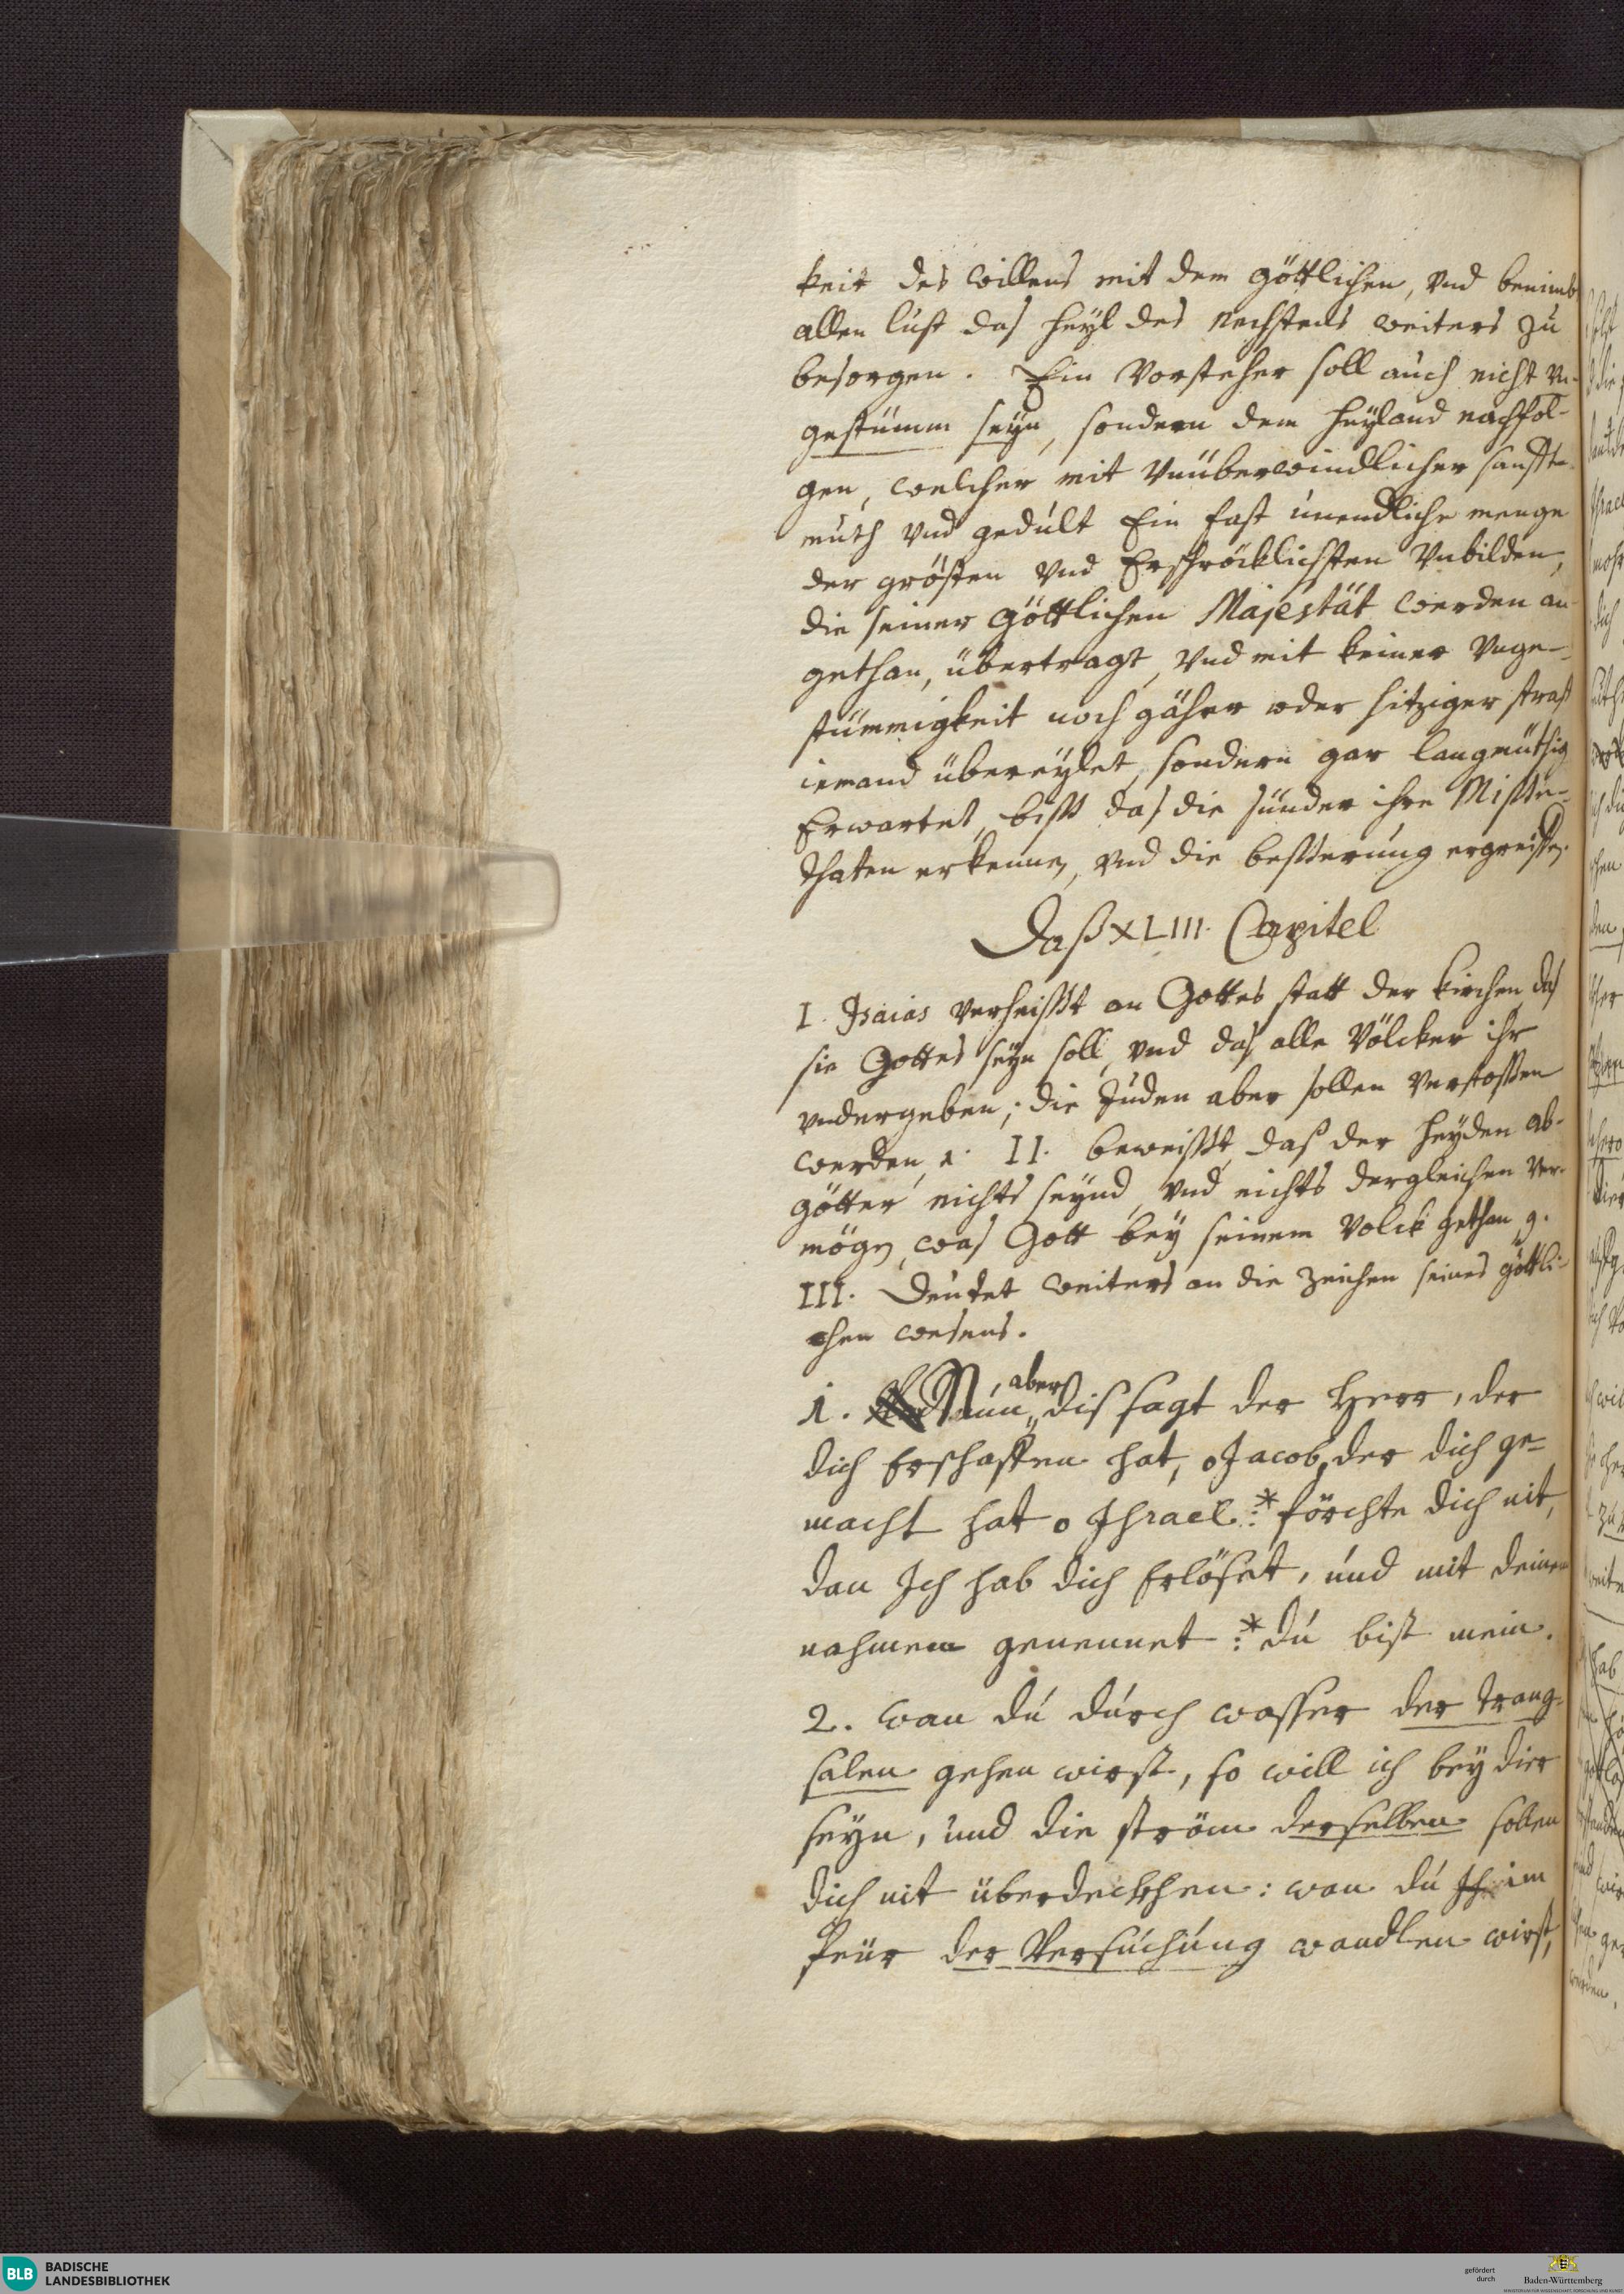 keit des willens mit dem göttlichen, vnd benimb
allen lust das heÿl des nechstens weiters zu
besorgen. Ein Vorsteher soll auch nicht vn-
gestümm seÿn, sondern dem heÿland nachfol-
gen, welcher mit vnüberwindlicher sanfft-
muth vnd gedult Ein fast unendliche menge
der grösten vnd Erschröcklichsten vnbilden,
die seiner göttlichen Majestät werden an-
gethan, übertragt, vnd mit keiner vnge-
stümmigkeit noch gäher oder hitziger straff
iemand übereÿlet, sondern gar langmüthig
Erwartet, biss das die sünder ihre Misse-
thaten erkennen, vnd die besserung ergreiffen.
Daß XLIII. Capitel
I. Isaias verheisst an Gottes statt der kirchen das
sie Gottes seÿn soll, vnd das alle Völcker ihr
vndergeben; die Juden aber sollen verstossen
werden, 1. II. beweisst, daß der heÿden ab-
götter nichts seÿnd, vnd nichts dergleichen ver-
mögen, was Gott beÿ seinem Volck gethan, 9.
III. Deutet weiters an die zeichen seines göttli-
chen wesens.
1. Nun aber dis sagt der Herr, der
dich Erschaffen hat, o Jacob, der dich ge-
macht hat o Ihrael:* förchte dich nit,
dan Ich hab dich Erlöset, und mit deinem
nahmen genennet:* du bist mein.
2. wan du durch wasser der trang-
salen gehen wirst, so will ich beÿ dier
seÿn, und die ström derselben sollen
dich nit überdeckhen: wan du im
feür der Versuchung wandlen wirst,
BLB BADISCHE
LANDESBIBLIOTHEK
gefördert
durch
Baden-Württemberg